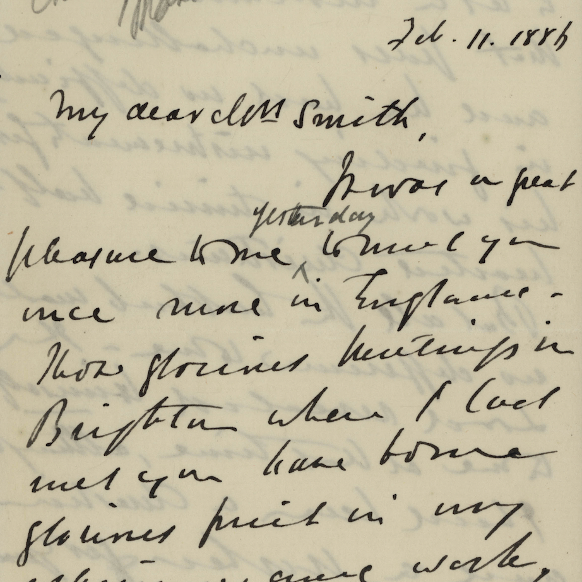 Feb. 11. 1886
My dear Mrs Smith,
It was a great
yesterday
pleasure to me ^ to meet you
once more in England.
Those glorious meetings in
Brighton where I last
met you have borne
glorious fruit in my
work.